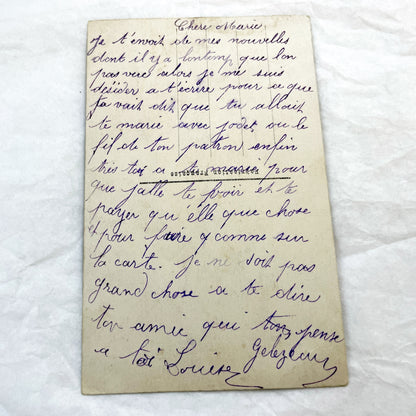 Chère Marie
Je t'envoit de mes nouvelles
dont il y a lontemp que l'on
pas vue alors je me suis
désider a t'écrire pour ce que
sa vait dit que tu allait
te marie avec jodet ou le
fils de ton patron enfin
a te marie pour
que jalle te voir et te
payer qu'elle que chose
pour faire comme sur
la carte. Je ne soit pas
grand chose a te dire
ton amie qui pense
a toi Louise